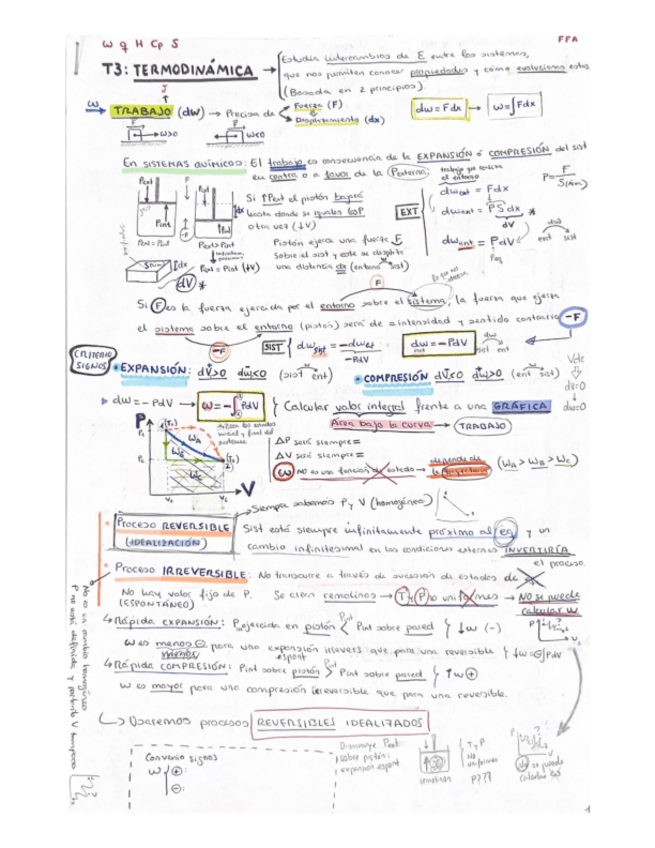 W q H Cp S
FFA
T3: TERMODINÁMICA →
Estudia intercambios de E entre los sistemas,
que nos permiten conocer propiedades y cómo evolucionan estos
(Basada en 2 principios).
W → TRABAJO (dW) → Precisa de
J
Fuerza (F)
Desplazamiento (dx)
dw = Fdx → w = ∫Fdx
F → W>0
F W<0
EN SISTEMAS QUÍMICOS: El trabajo es consecuencia de la EXPANSIÓN ó COMPRESIÓN del sist
en contra o a favor de la Pexterna.
trabajo que realiza el entorno
P = F
Pext
Pint
Pext = Pint
Pext > Pint
Pext = Pint (↓V)
Si ↑Pext el pistón bajará
hasta donde se igualen las P
otra vez (↓V)
Pistón ejerce una fuerza F
sobre el sist y este se desplaza
una distancia dx (entorno sist)
EXT
dWext = Fdx
dWext = PSdx *
dV
dWext = PdV
ent sist
dx
dV *
F
Si F es la fuerza ejercida por el entorno sobre el sistema, la fuerza que ejerce
el sistema sobre el entorno (pistón) será de = intensidad y sentido contrario -F
-F
SIST
dWsist = -dWext
-PdV
dw = -PdV
dw
sist ent
CRITERIO SIGNOS
• EXPANSIÓN: dV>0 dw<0 (sist ent)
• COMPRESIÓN dV<0 dw>0 (ent sist)
V cte
dV=0
dw=0
▶ dw = - PdV → W = -∫PdV
Calcular valor integral frente a una GRÁFICA
Área bajo la curva → TRABAJO
P
V
WA
WB
WC
ΔP será siempre =
ΔV será siempre =
W NO es una función de estado → depende de la trayectoria (WA > WB > WC)
Siempre sabemos P y V (homogéneo)
• Proceso REVERSIBLE
(IDEALIZACIÓN)
Sist está siempre infinitamente próximo al eq y un
cambio infinitesimal en las condiciones externas INVERTIRÍA
el proceso.
• Proceso IRREVERSIBLE: No transcurre a través de sucesión de estados de
No hay valor fijo de P. Se crean remolinos → T y P no uniformes → NO se puede
(ESPONTÁNEO)
calcular W
↳ Rápida EXPANSIÓN: P ejercida en pistón < Pint sobre pared } ↓W (-)
W es menos ⊖ para una expansión irrevers que para una reversible
espont
↳ Rápida COMPRESIÓN: Pint sobre pistón > Pint sobre pared } ↑W ⊕
W es mayor para una compresión irreversible que para una reversible.
↳ Usaremos procesos REVERSIBLES IDEALIZADOS
No es un cambio homogéneo
P no está definida y
V tampoco
Convenio signos
W { ⊕:
⊖:
Disminuye Pext
sobre pistón:
expansión espont.
remolinos
T y P
No uniformes
P???
P
V
se puede
calcular
1